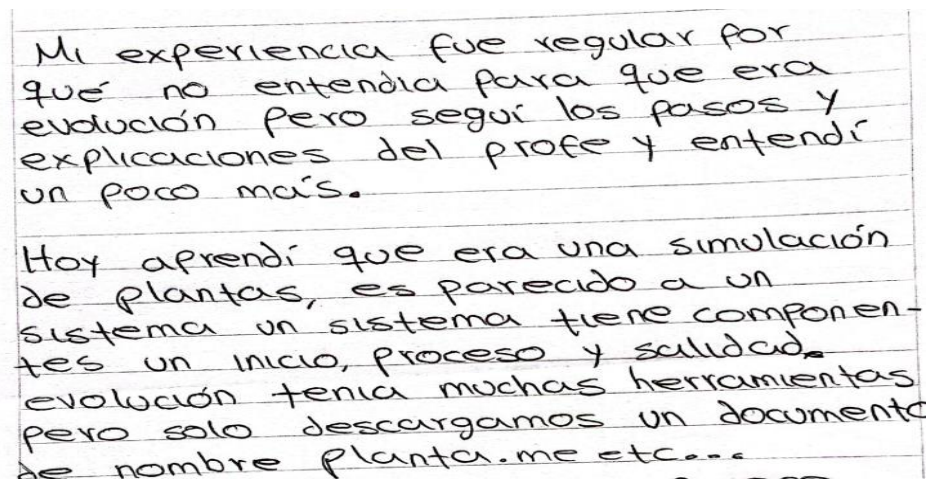 Mi experiencia fue regular por
qué no entendia para que era
evolución pero seguí los pasos y
explicaciones del profe y entendí
un poco más.
Hoy aprendí que era una simulación
de plantas, es parecido a un
sistema un sistema tiene componen-
tes un inicio, proceso y salidad.
evolución tenia muchas herramientas
pero solo descargamos un documento
de nombre planta.me etc...